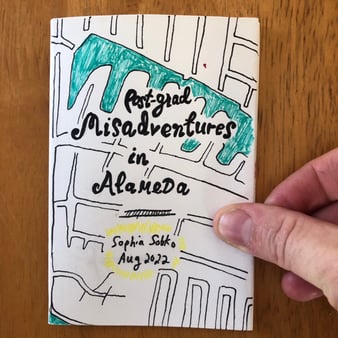 Post-grad
Misadventures
in
Alameda
Sophia Sobko
Aug 2022